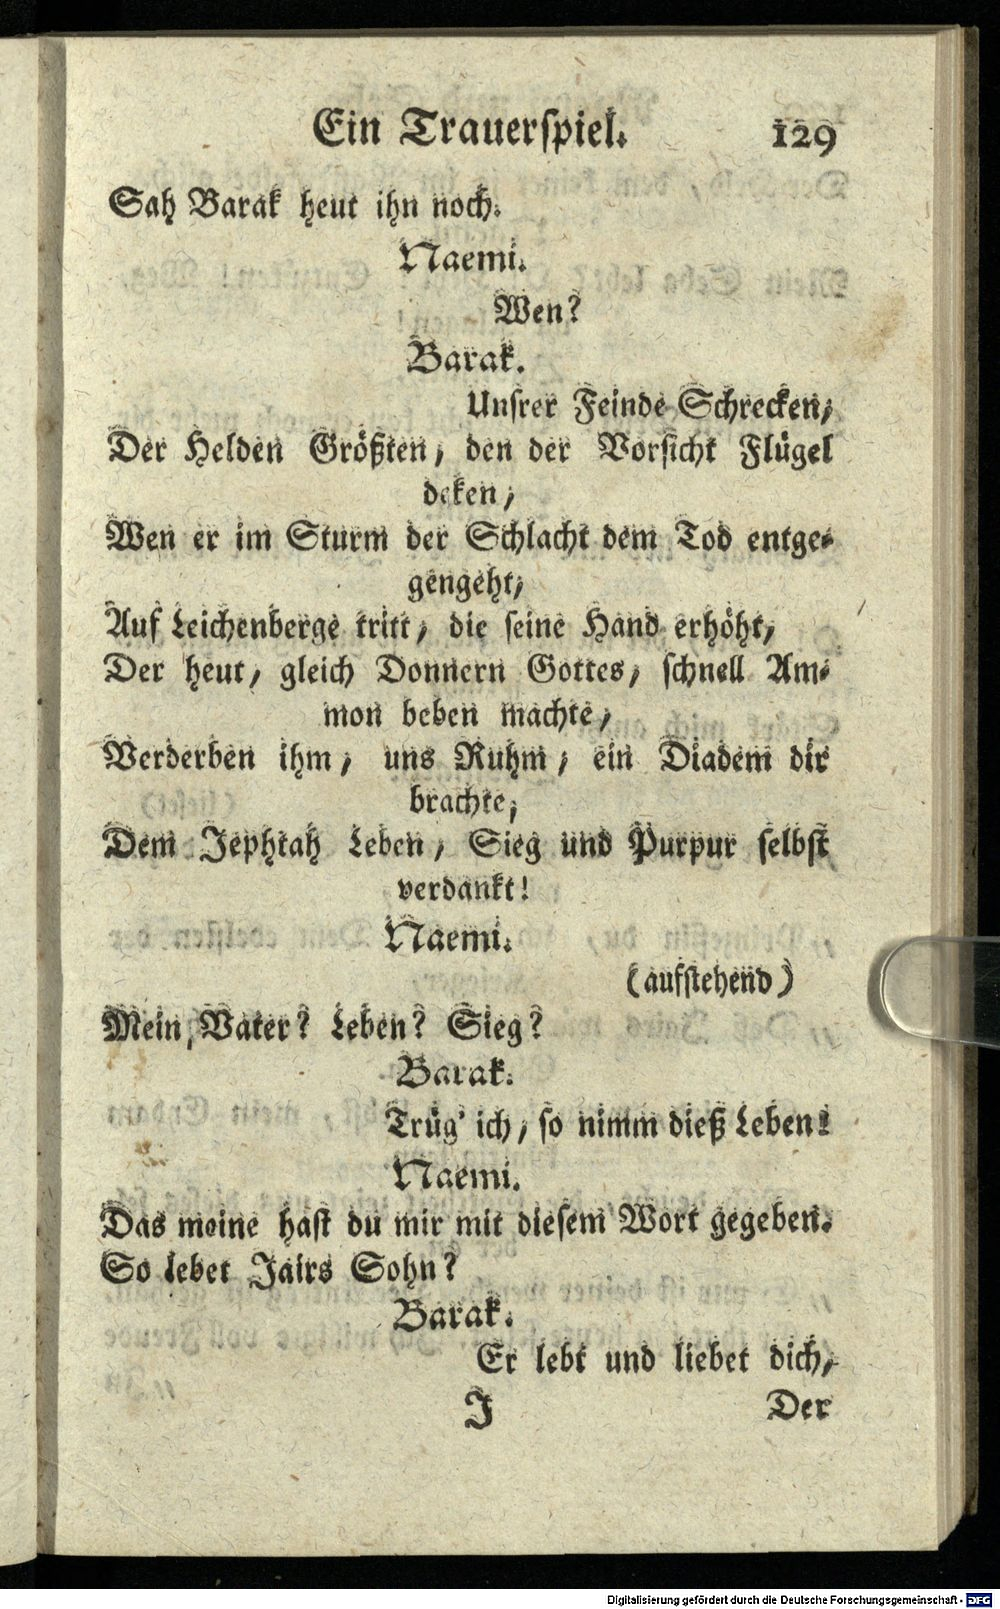 Ein Trauerſpiel. 129
Sah Barak heut ihn noch.
Naemi.
Wen?
Barak.
Unſrer Feinde Schrecken,
Der Helden Größten, den der Vorſicht Flügel
deken,
Wen er im Sturm der Schlacht dem Tod entge-
gengeht,
Auf Leichenberge tritt, die ſeine Hand erhöht,
Der heut, gleich Donnern Gottes, ſchnell Am-
mon beben machte,
Verderben ihm, uns Ruhm, ein Diadem dir
brachte,
Dem Jephtah Leben, Sieg und Purpur ſelbſt
verdankt!
Naemi.
(aufſtehend)
Mein Vater? Leben? Sieg?
Barak.
Trüg' ich, ſo nimm dieß Leben!
Naemi.
Das meine haſt du mir mit dieſem Wort gegeben.
So lebet Jairs Sohn?
Barak.
Er lebt und liebet dich,
J Der
Digitalisierung gefördert durch die Deutsche Forschungsgemeinschaft - DFG